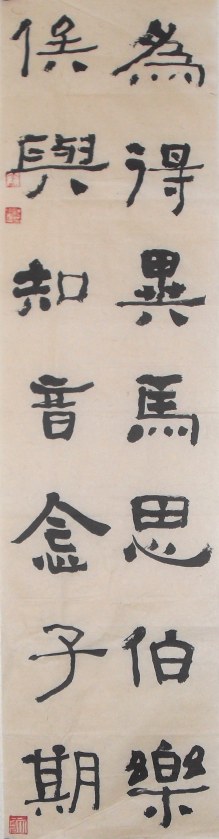 為得異馬思伯樂
俟與知音念子期